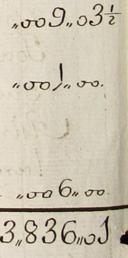 „009„03½
„001„00.
„006„00
3„836„01